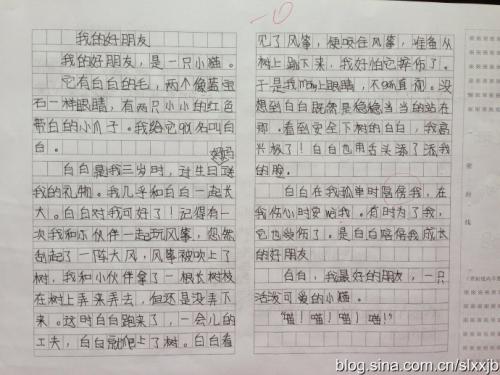 -10
我的好朋友
我的好朋友，是一只小猫。
它有白白的毛，两个像蓝宝
石一样眼睛，有两只小小的红色
带白的小爪子。我给它取名叫白
白。
白白是我三岁时，过生日妈妈送
我的礼物。我几乎和白白一起长
大。白白对我可好了！记得有一
次我和小伙伴一起玩风筝，忽然
刮起了一阵大风，风筝被吹上了
树，我和小伙伴拿了一根长树枝
在树上弄来弄去，但还是没弄下
来。这时白白跑来了，一会儿的
工夫，白白就爬上了树。白白看
见了风筝，便咬住风筝，准备从
树上跳下来，我好怕它摔伤了。于
是我闭上眼睛，不敢直视。没
想到白白既然是稳稳当当的站在
那。看到安全下树的白白，我高
兴极了！白白也用舌头添了添我
的脸。
白白在我孤单时陪傍我，在
我伤心时安慰我。有时为了我，
它也受伤了。是白白陪傍我成长
的好朋友
白白，我最好的朋友，一只
活泼可爱的小猫。
“喵！喵！喵！喵！”
密
封
线
blog.sina.com.cn/slxxjb